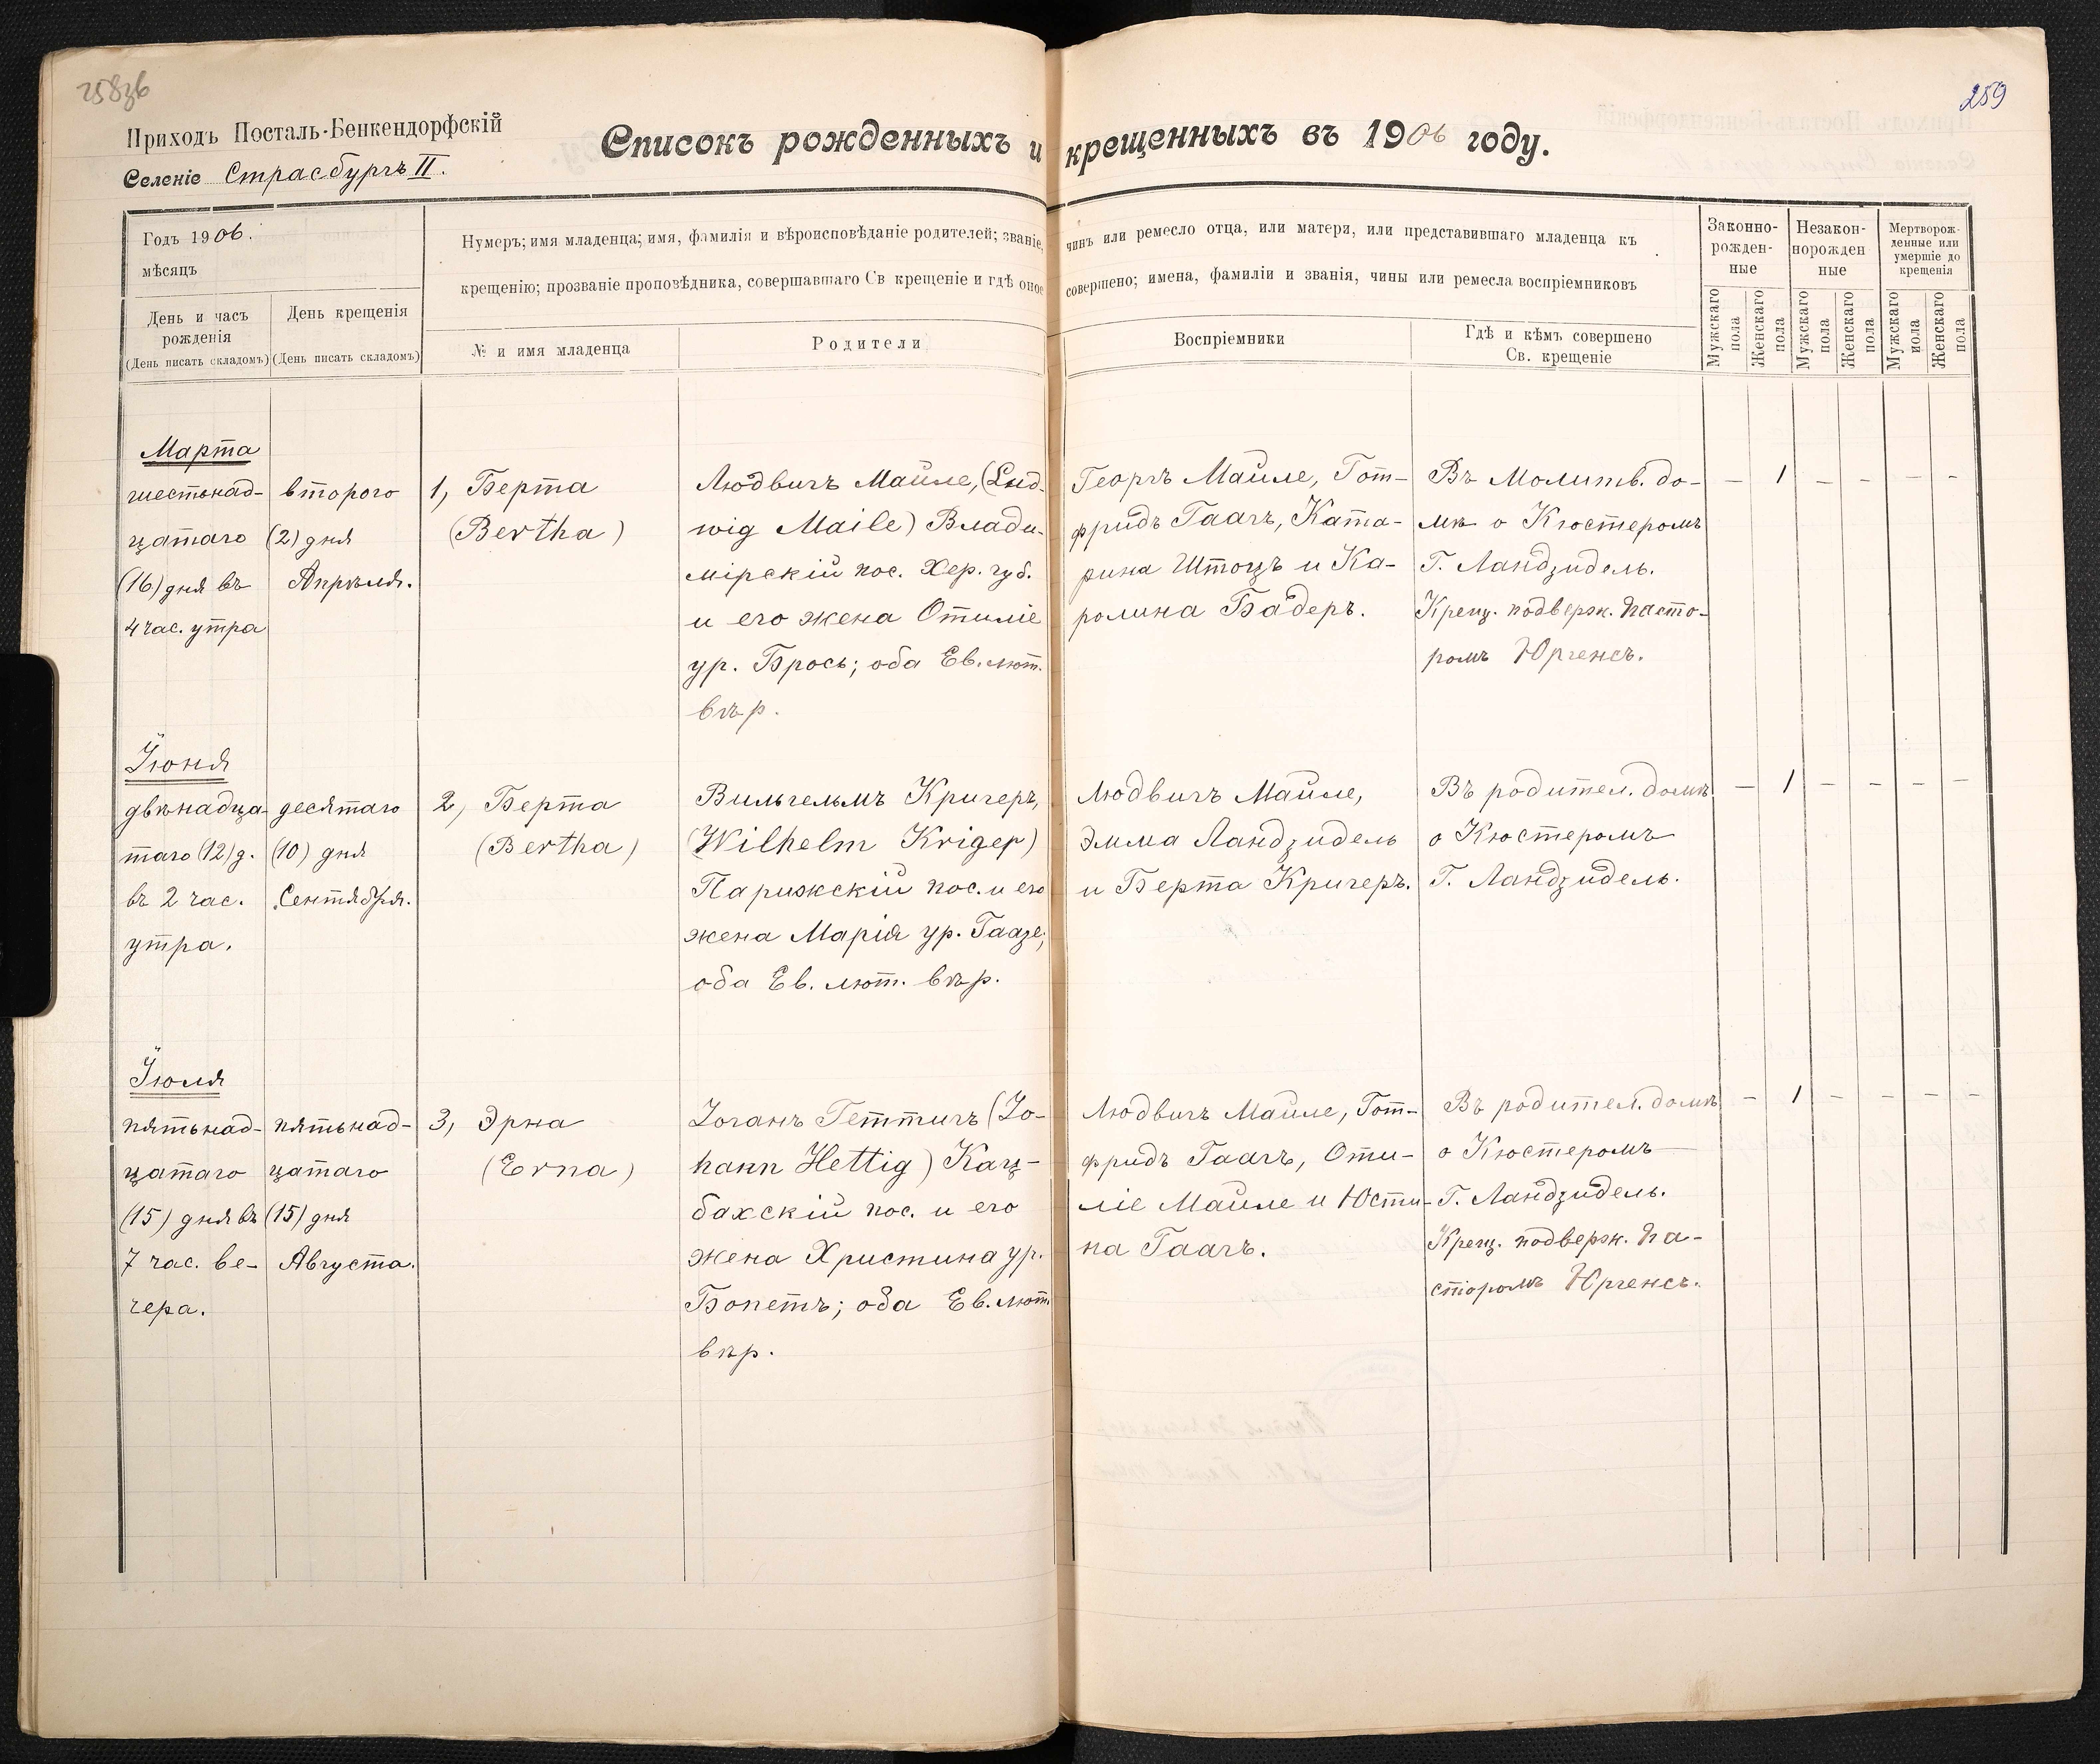 258зб
259
Приходъ Посталь-Бенкендорфскій
Селеніе Страсбургъ II.
Списокъ рожденныхъ и крещенныхъ въ 1906 году.
Годъ 1906.
мѣсяцъ
День и часъ рожденія
(День писать складомъ)
День крещенія
(День писать складомъ)
Нумеръ; имя младенца; имя, фамилія и вѣроисповѣданіе родителей; званіе, чинъ или ремесло отца, или матери, или представившаго младенца къ
крещенію; прозваніе проповѣдника, совершавшаго Св крещеніе и гдѣ оное совершено; имена, фамиліи и званія, чины или ремесла воспріемниковъ
№ и имя младенца
Родители
Воспріемники
Гдѣ и кѣмъ совершено
Св. крещеніе
Законно-
рожден-
ные
Незакон-
норожден
ные
Мертворож-
денные или
умершіе до
крещенія
Мужскаго пола
Женскаго пола
Мужскаго пола
Женскаго пола
Мужскаго пола
Женскаго пола
Марта
шестьнад-
цатаго
(16) дня въ
4 час. утра
второго
(2) дня
Апрѣля.
1, Берта
(Bertha)
Людвигъ Майле, (Lud-
wig Maile) Влади-
мірскій пос. Хер. губ.
и его жена Отиліе
ур. Брось; оба Ев. лют.
вѣр.
Георгъ Майле, Гот-
фридъ Гаагъ, Ката-
рина Штоцъ и Ка-
ролина Бадеръ.
Въ Молитв. до-
мѣ о Кюстеромъ
Г. Ландзидель.
Крещ. подверж. Пасто-
ромъ Юргенсъ.
— 1 — — — —
Іюня
двѣнадца-
таго (12) д.
въ 2 час.
утра.
десятаго
(10) дня
Сентября.
2, Берта
(Bertha)
Вильгельмъ Кригеръ,
(Wilhelm Kriger)
Парижскій пос. и его
жена Марія ур. Гаазе;
оба Ев. лют. вѣр.
Людвигъ Майле,
Эмма Ландзидель
и Берта Кригеръ.
Въ родител. домѣ
о Кюстеромъ
Г. Ландзидель.
— 1 — — — —
Іюля
пятьнад-
цатаго
(15) дня въ
7 час. ве-
чера.
пятьнад-
цатаго
(15) дня
Августа.
3, Эрна
(Erna)
Іоганъ Геттигъ (Jo-
hann Hettig) Кац-
бахскій пос. и его
жена Христина ур.
Бопетъ; оба Ев. лют.
вѣр.
Людвигъ Майле, Гот-
фридъ Гаагъ, Оти-
ліе Майле и Юсти-
на Гаагъ.
Въ родител. домѣ
о Кюстеромъ
Г. Ландзидель.
Крещ. подверж. Па-
сторомъ Юргенсъ.
— 1 — — — —